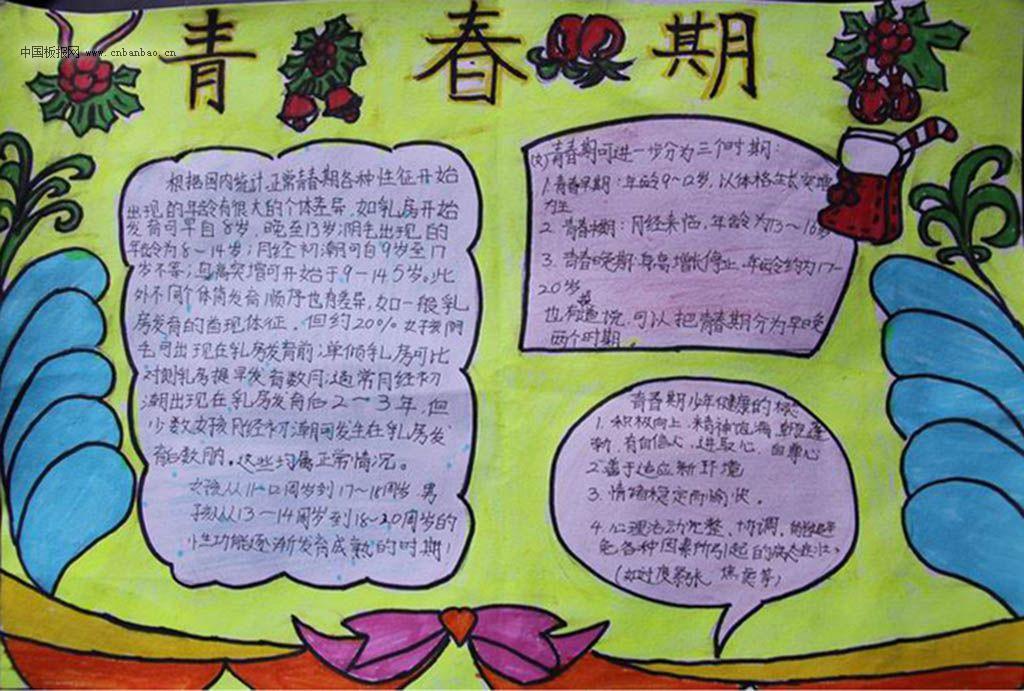 中国板报网 www.cnbanbao.cn
青春期
根据国内统计,正常青春期各种性征开始
出现的年龄有很大的个体差异,如乳房开始
发育可早自8岁,晚至13岁;阴毛出现的
年龄为8~14岁;月经初潮可自9岁至17
岁不等;身高突增可开始于9~14.5岁。此
外不同个体间发育顺序也有差异,如一般乳
房发育的首现体征,但约20%女孩阴
毛可出现在乳房发育前;单侧乳房可比
对侧乳房提早发育数月;通常月经初
潮出现在乳房发育后2~3年,但
少数女孩月经初潮可发生在乳房发
育后数月。这些均属正常情况。
女孩从11~12周岁到17~18周岁,男
孩从13~14周岁到18~20周岁的
性功能逐渐发育成熟的时期!
青春期可进一步分为三个时期:
1.青春早期:年龄9~12岁,以体格生长突增
为主
2.青春中期:月经来临,年龄为13~16岁
3.青春晚期:身高增长停止,年龄约为17-
20岁
也有 说,可以把青春期分为早晚
两个时期
青春期少年健康的标志
1.积极向上,精神饱满,朝气蓬
勃,有自信心,进取心,自尊心
2.善于适应新环境
3.情绪稳定而愉快。
4.心理活动完整、协调,能避
免各种因素所引起的病态
(如过度紧张、焦虑等)